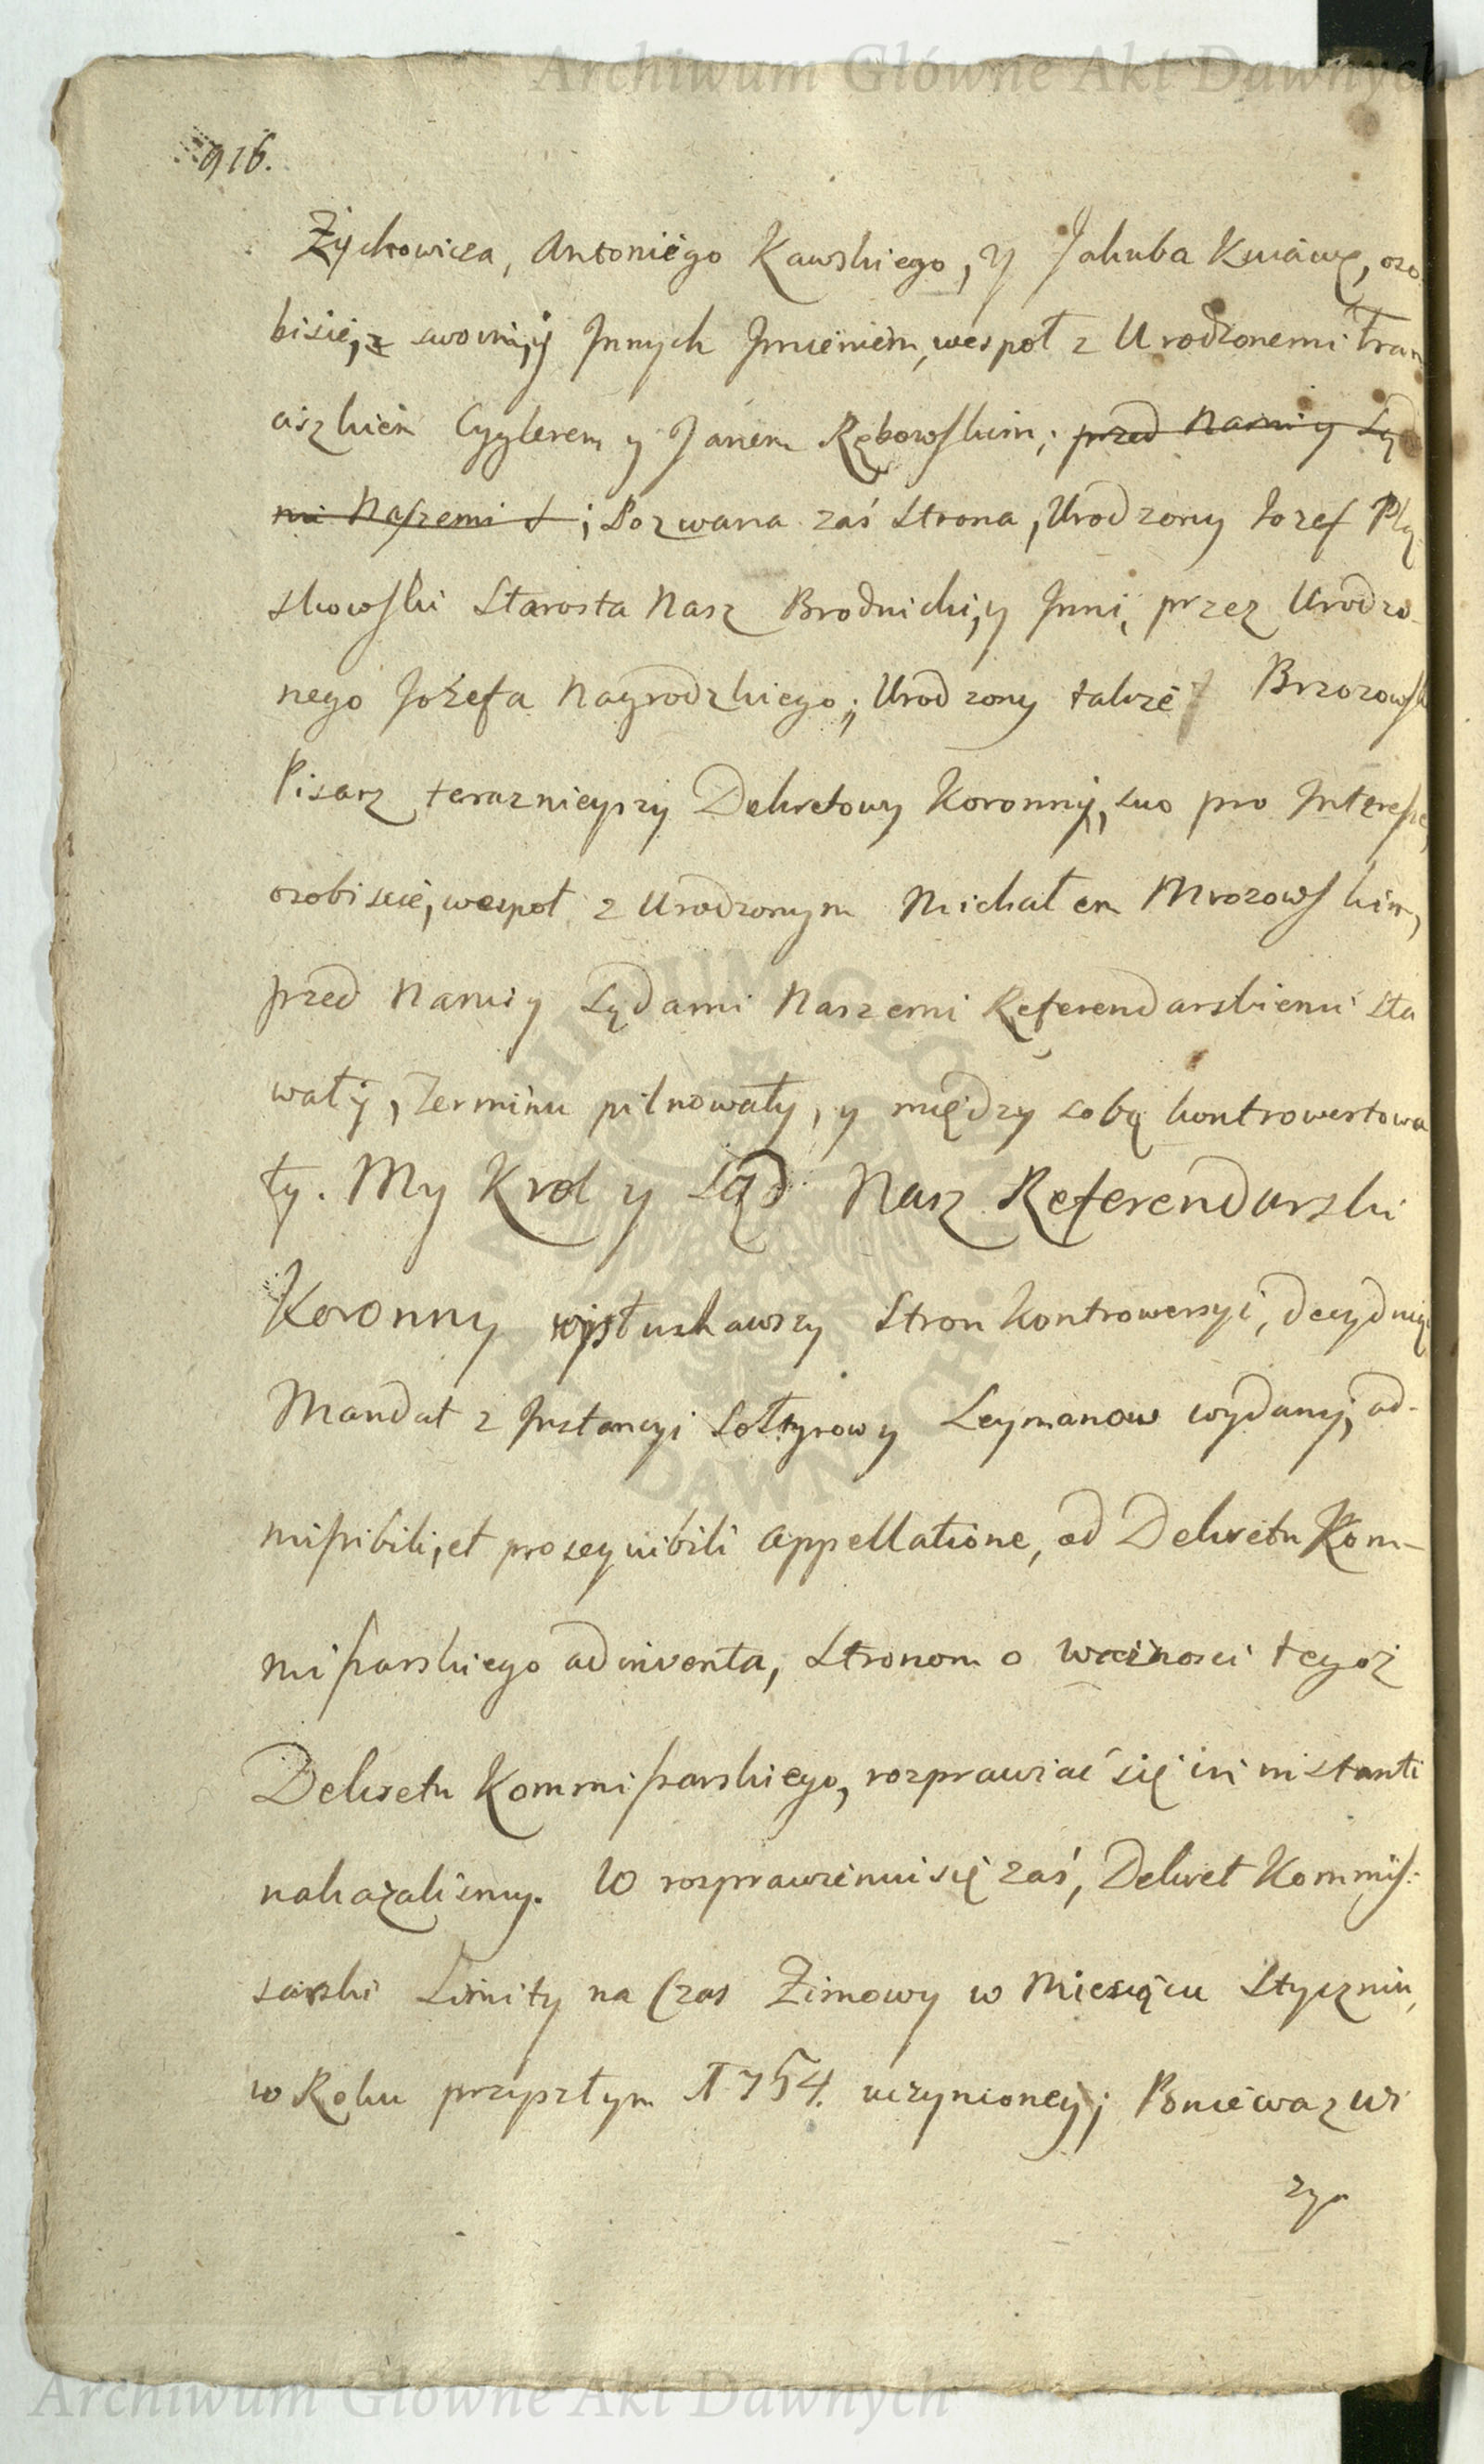 Archiwum Główne Akt Dawnych
916.
Żychowicza, Antoniego Kawskiego, y Jakuba Kuiawę, oso
biscie, z swoim, y Jnnych Jmieniem, wespoł z Urodzonemi Fran
ciszkiem Cyglerem y Janem Rębowskim; przed Nami y Sę
mi Naszemi; Pozwana zaś Strona, Urodzony Jozef Plą
skowski Starosta Nasz Brodnicki, y Jnni, przez Urodzo-
nego Jozefa Nagrodzkiego; Urodzony także Brzozowsk
Pisarz terazniejszy Dekretowy Koronny, suo pro Jnteresse,
osobiscie, wespoł z Urodzonym Michałem Mrozowskim,
przed Nami y Sądami Naszemi Referendarskiemi sta
wały, Terminu pilnowały, y między sobą kontrowertowa
ły. My Krol y Sąd Nasz Referendarski
Koronny wysłuchawszy Stron Kontrowersyi, decyduiąc
Mandat z Jnstancyi Sołtysow y Leymanow wydany, ad-
missibili, et prosequibili Appellatione, od Dekretu Kom-
missarskiego adinventa, Stronom o ważnosci tegoż
Dekretu Kommissarskiego, rozprawiać się in instanti
nakazalismy. W rozprawieniu się zaś, Dekret Kommis-
sarski Limity na Czas Zimowy w Miesiącu Styczniu,
w Roku przyszłym 1754. uczynioney; Poniewaz Ur
zyn
Archiwum Główne Akt Dawnych